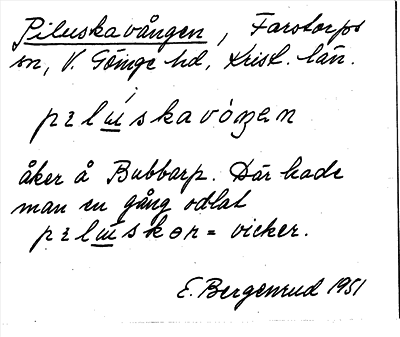 Piluskavången, Farstorps
sn, V. Göinge hd, Krist. län.
pɪlúskavóŋen
åker å Bubbarp. Där hade
man en gång odlat
pɪlúskər = vicker.
E. Bergenrud 1951